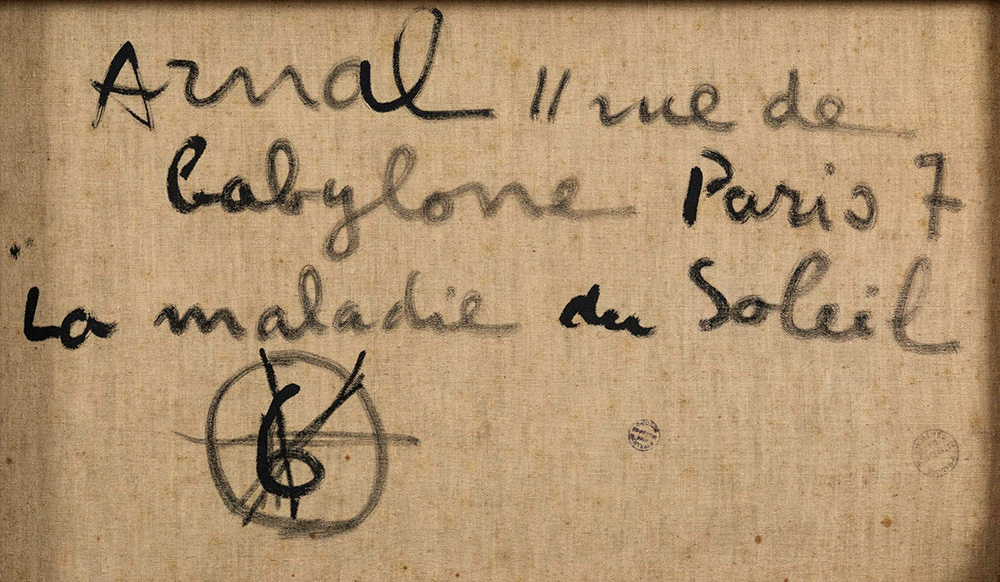 Arnal 11 rue de
babylone Paris 7
"La maladie du Soleil
6